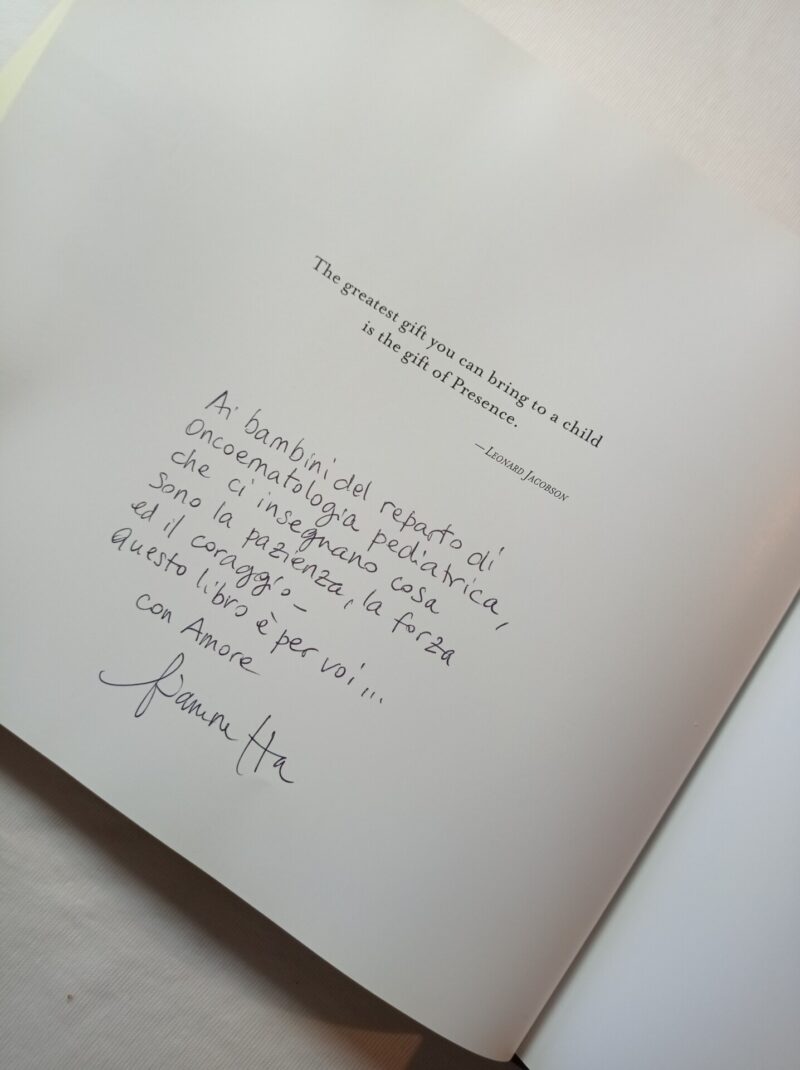 The greatest gift you can bring to a child
is the gift of Presence.
—Leonard Jacobson
Ai bambini del reparto di
Oncoematologia pediatrica,
che ci insegnano cosa
sono la pazienza, la forza
ed il coraggio –
Questo libro è per voi...
con Amore
Fiammetta